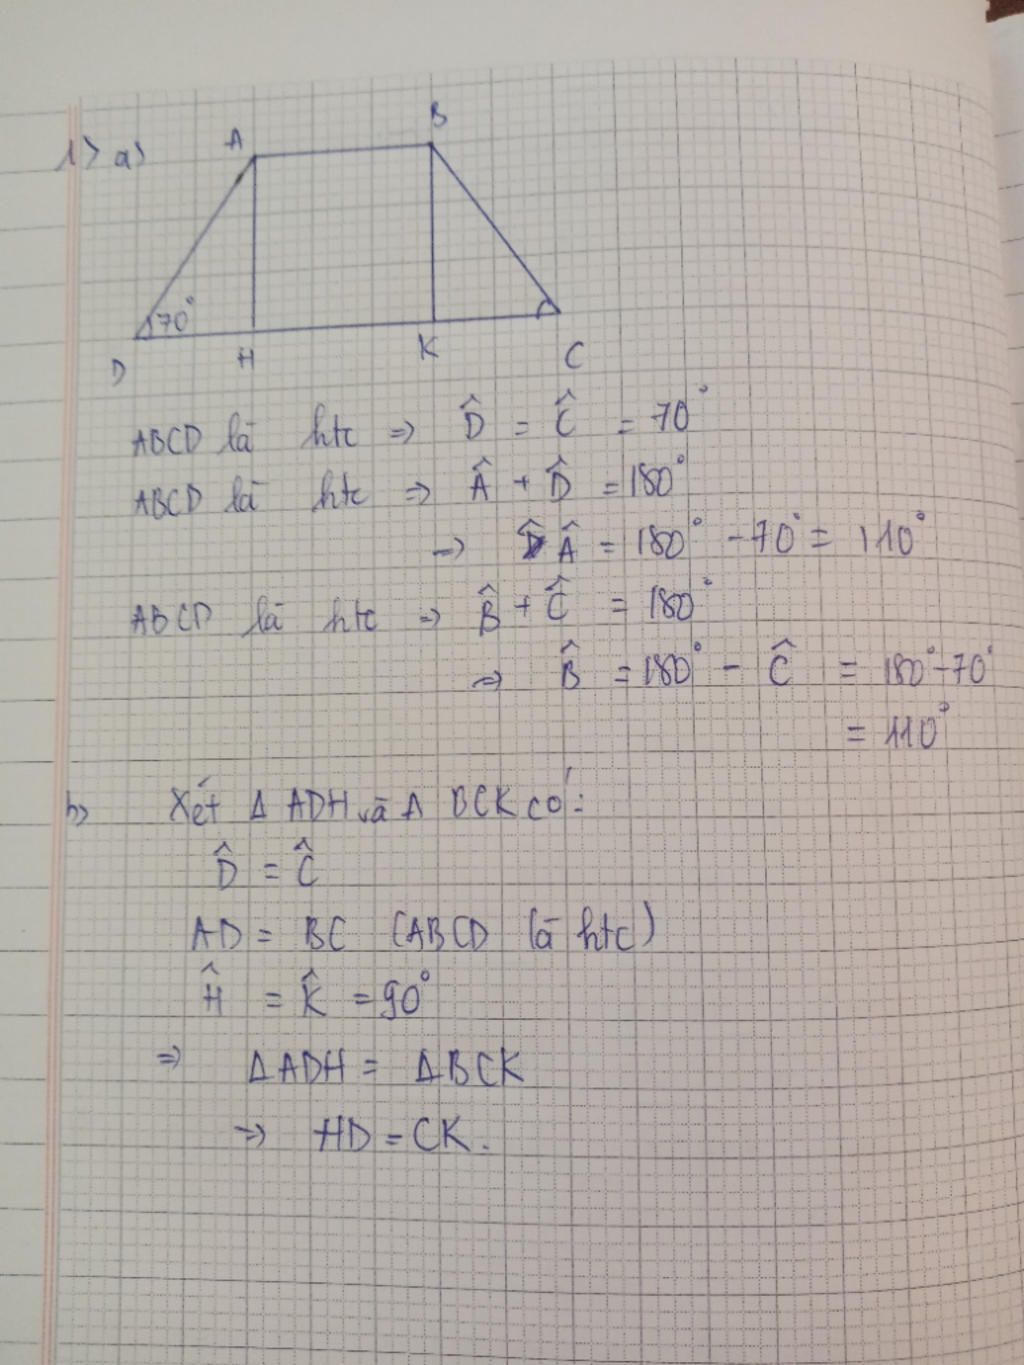 1> a>
A
B
70°
D
H
K
C
ABCD là htc => D̂ = Ĉ = 70°
ABCD là htc => Â + D̂ = 180°
=> Â = 180° - 70° = 110°
ABCD là htc => B̂ + Ĉ = 180°
=> B̂ = 180° - Ĉ = 180° - 70°
= 110°
b> Xét Δ ADH và Δ BCK có:
D̂ = Ĉ
AD = BC (ABCD là htc)
Ĥ = K̂ = 90°
=> ΔADH = ΔBCK
=> HD = CK.